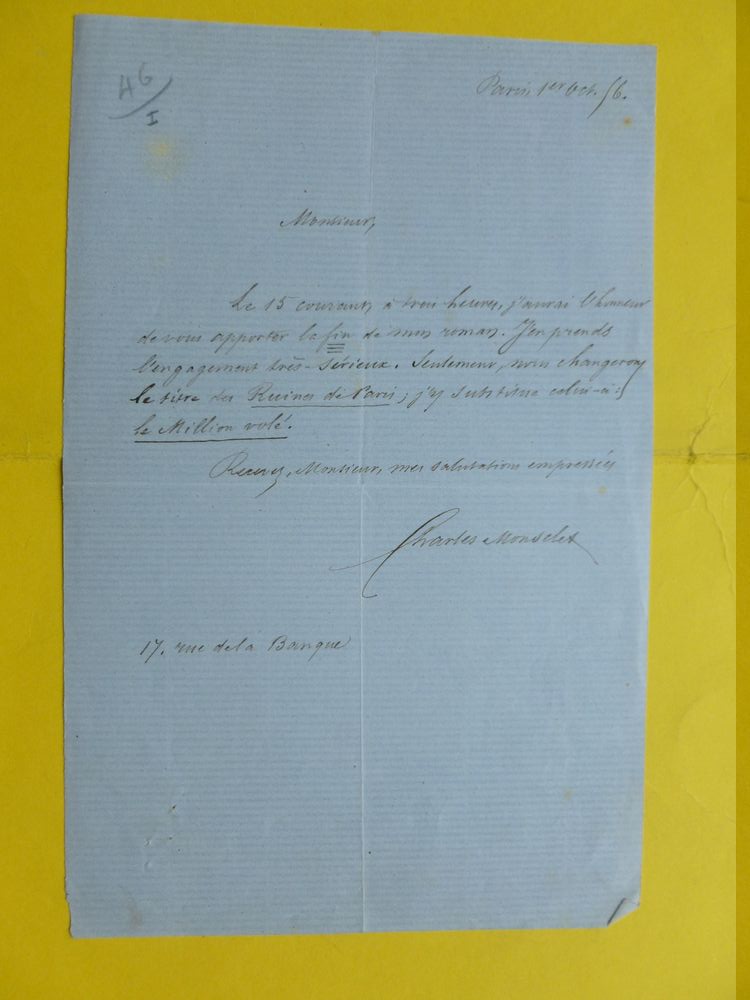 46
I
Paris 1er Oct. 56.
Monsieur,
Le 15 courant, à trois heures, j'aurai l'honneur
de vous apporter la fin de mon roman. J'en prends
l'engagement très-sérieux. Seulement, nous changerons
le titre des Ruines de Paris; j'y substitue celui-ci:
le Million volé.
Recevez, Monsieur, mes salutations empressées
Charles Monselet
17, rue de la Banque